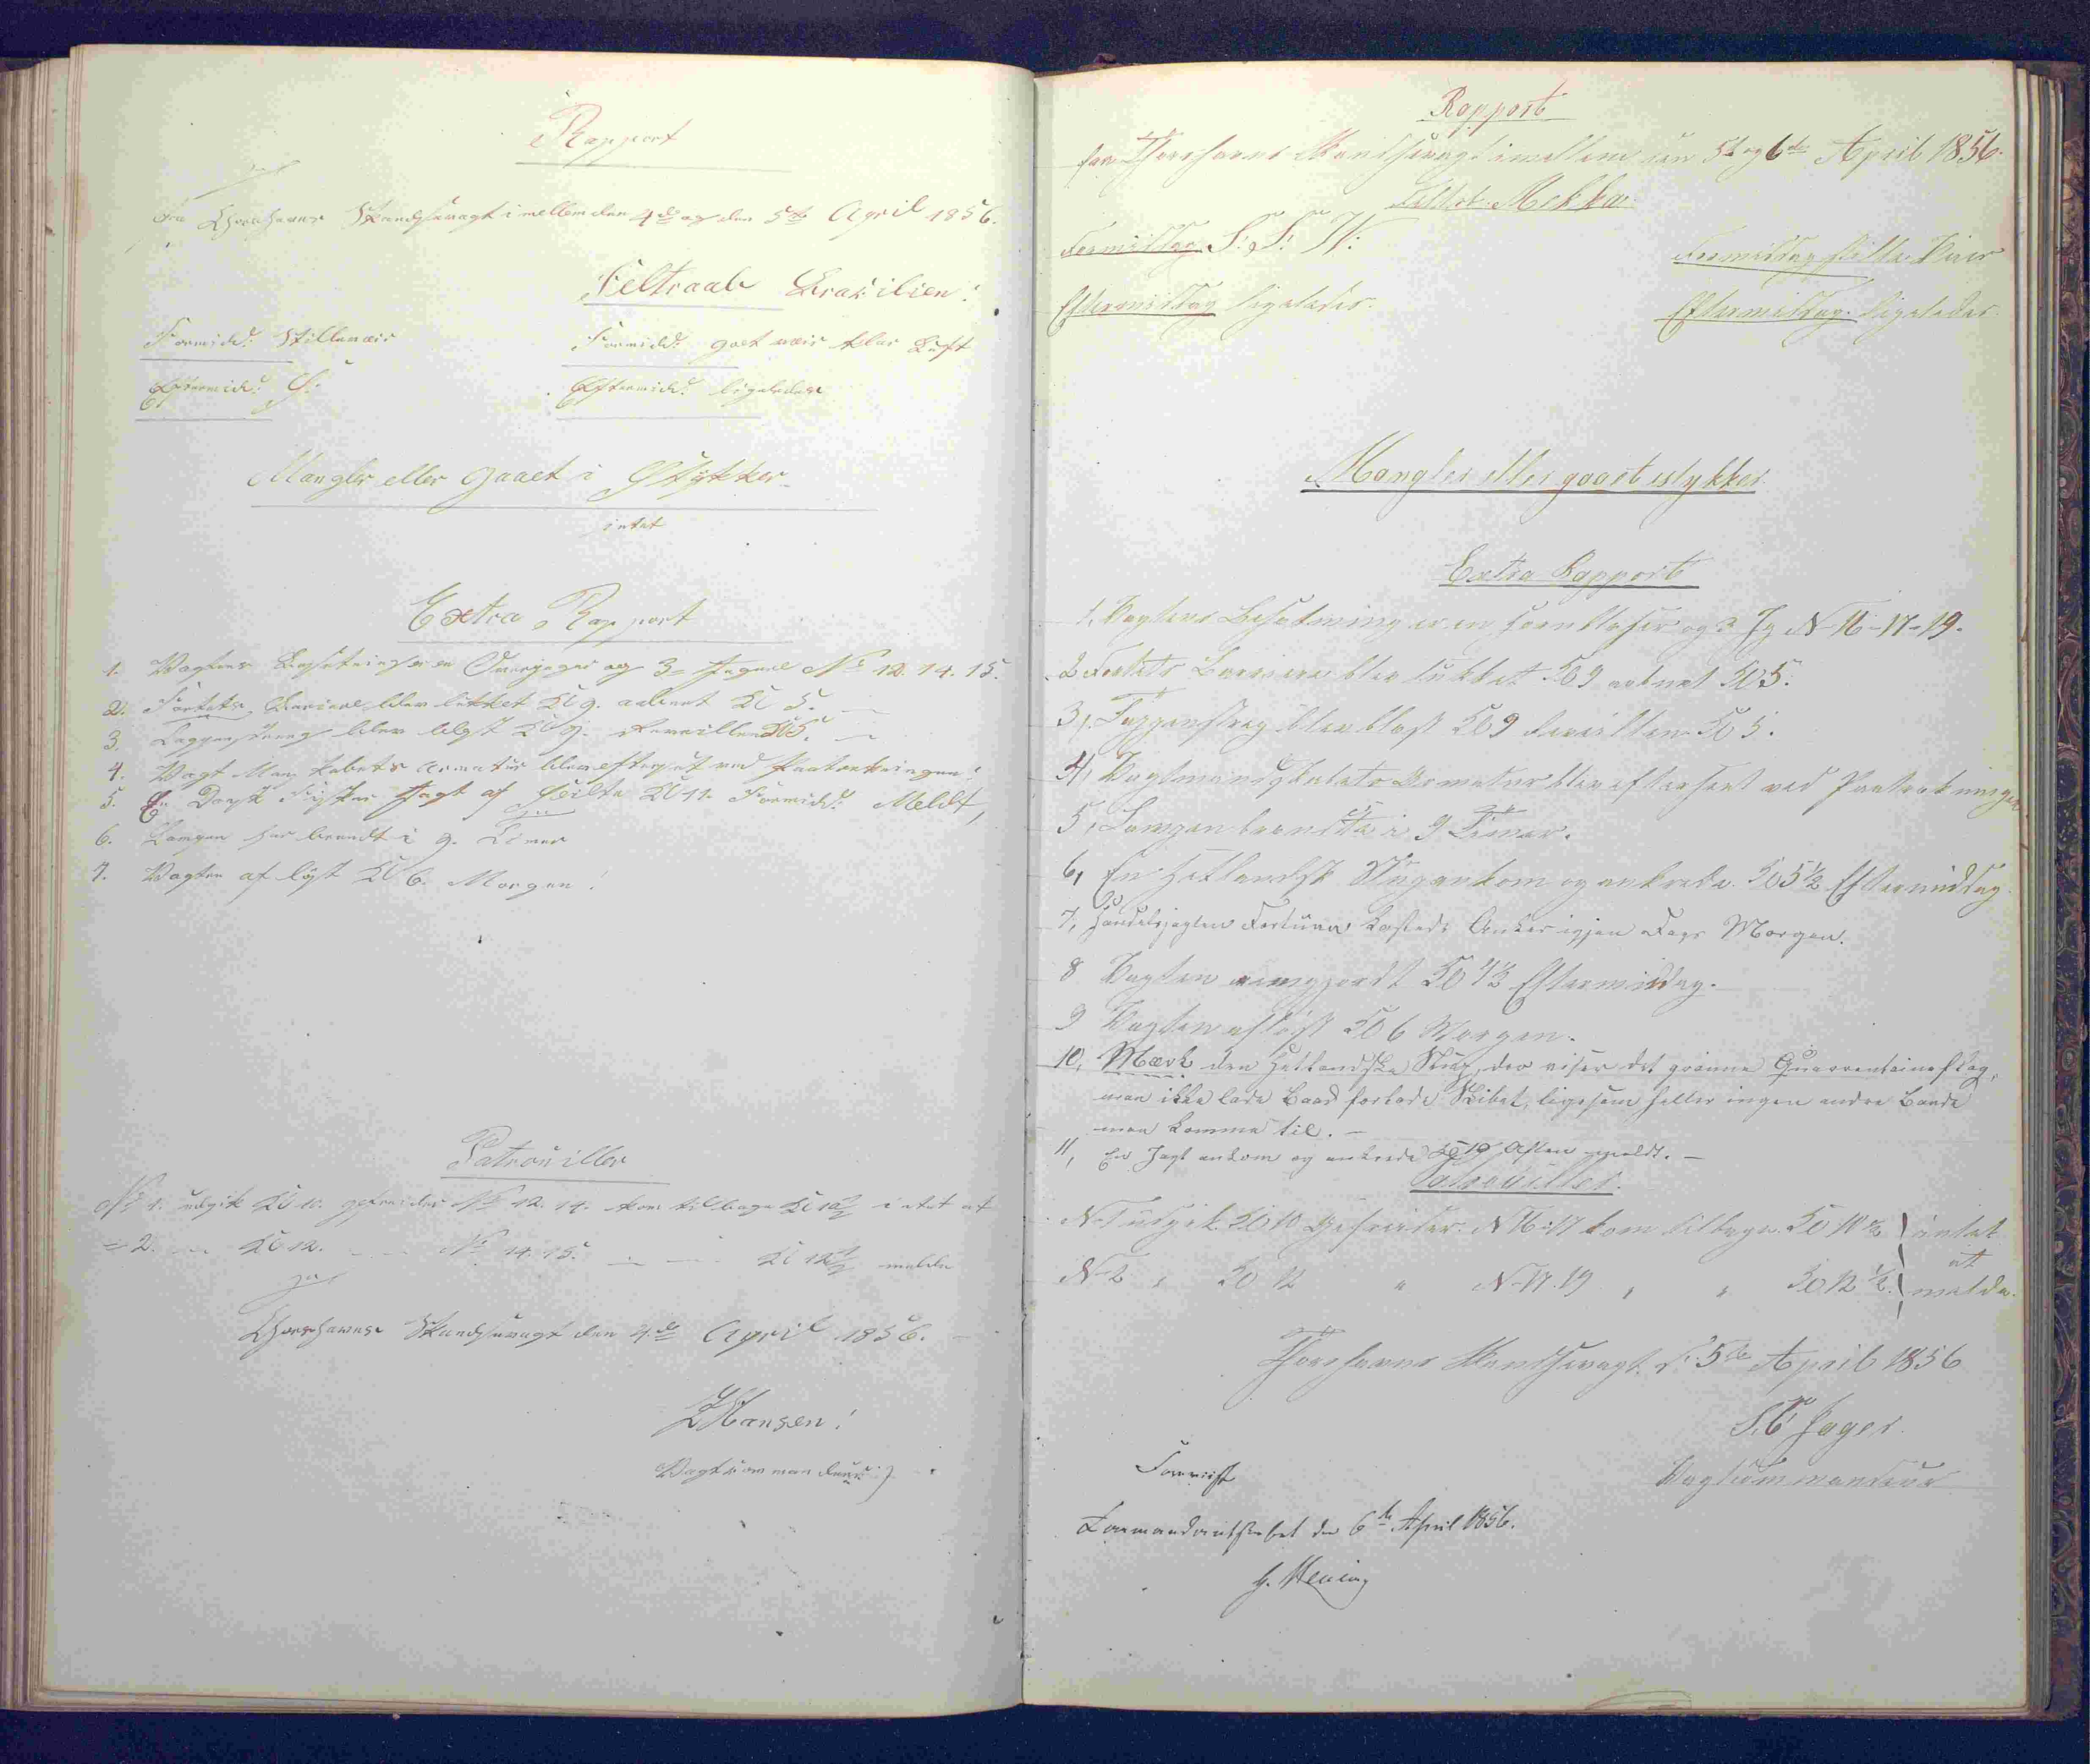 Rapport
fra Thorshavns Skandsevagt imellem den 4de og den 5te April 1856.
Feltraab Brasilien!
Formidd: Stillevæir
Formidd: godt væir klar Luft
Eftermidd: S.
Eftermidd: ligeledes
Mangler eller gaaet i Stykker
intet
Extra Rapport
1. Vagtens Besætning er en Overjæger og 3 Jægere No 12. 14. 15.
2. Fortets Bariere blev lukket Kl 9. aabnet Kl 5.
3. Tappenstreg blev blæst Kl 9. Reveillen Kl 5.
4. Vagt Mandskabets Armatur blev efterseet ved Paatrækningen!
5. En Dansk Jagt af Kl 11. Formidd: Meldt,
6. Lampen har brændt i 9. Timer
7. Vagten afløst Kl 6. Morgen!
Patrouiller
No 1. udgik Kl 10. gefreider No 12. 14. kom tilbage Kl 10½ intet at
= 2. Kl 12. No 14. 15. Kl 12½ melde
Thorshavns Skandsevagt den 4de April 1856.
Hansen!
Vagtcommandeur
Rapport
fra Thorshavns Skandsevagt imellem den 5te og 6te April 1856.
Feltraab Mekka
Formiddag S. S. W:
Formiddag stille Veir
Eftermiddag ligeledes.
Eftermiddag ligeledes.
Mangler eller gaaet istykker
Extra Rapport
1, Vagtens Besætning er en Hornblæser og 3 Jg No 16-17-19.
2 Fortets Barriere blev lukket Kl 9 aabnet Kl 5.
3, Tappenstreg blev blæst Kl 9 Reveillen Kl 5.
4, Vagtmandskabets Armatur blev efterseet ved Paatrækningen
5, Lampen brændte i 9 Timer.
6, En Hetlandsk Slup ankom og ankrede Kl 5½ Eftermiddag
7, Handelsjagten Fortuna kastede Anker igjen Dags Morgen.
8 Vagten reengjordt Kl 4½ Eftermiddag.
9 Vagten afløst Kl 6 Morgen.
10, Mærk den Hetlandske Slup, der viser det grønne Quarrentaineflag,
maa ikke lade Baad forlade Skibet, ligesom heller ingen andre Baade
maa komme til. —
11, En Jagt ankom og ankrede Kl 10 Aften meldt. —
Patrouiller.
No 1 udgik Kl 10 Gefreider No 16-17 kom tilbage Kl 10½ intet
at
No 2 „ Kl 12 „ No 17. 19 „ „ Kl 12½ melde.
Thorshavns Skandsevagt d: 5te April 1856
Jager
Vagtcommandeur
Forviist
Commandantskabet den 6te April 1856.